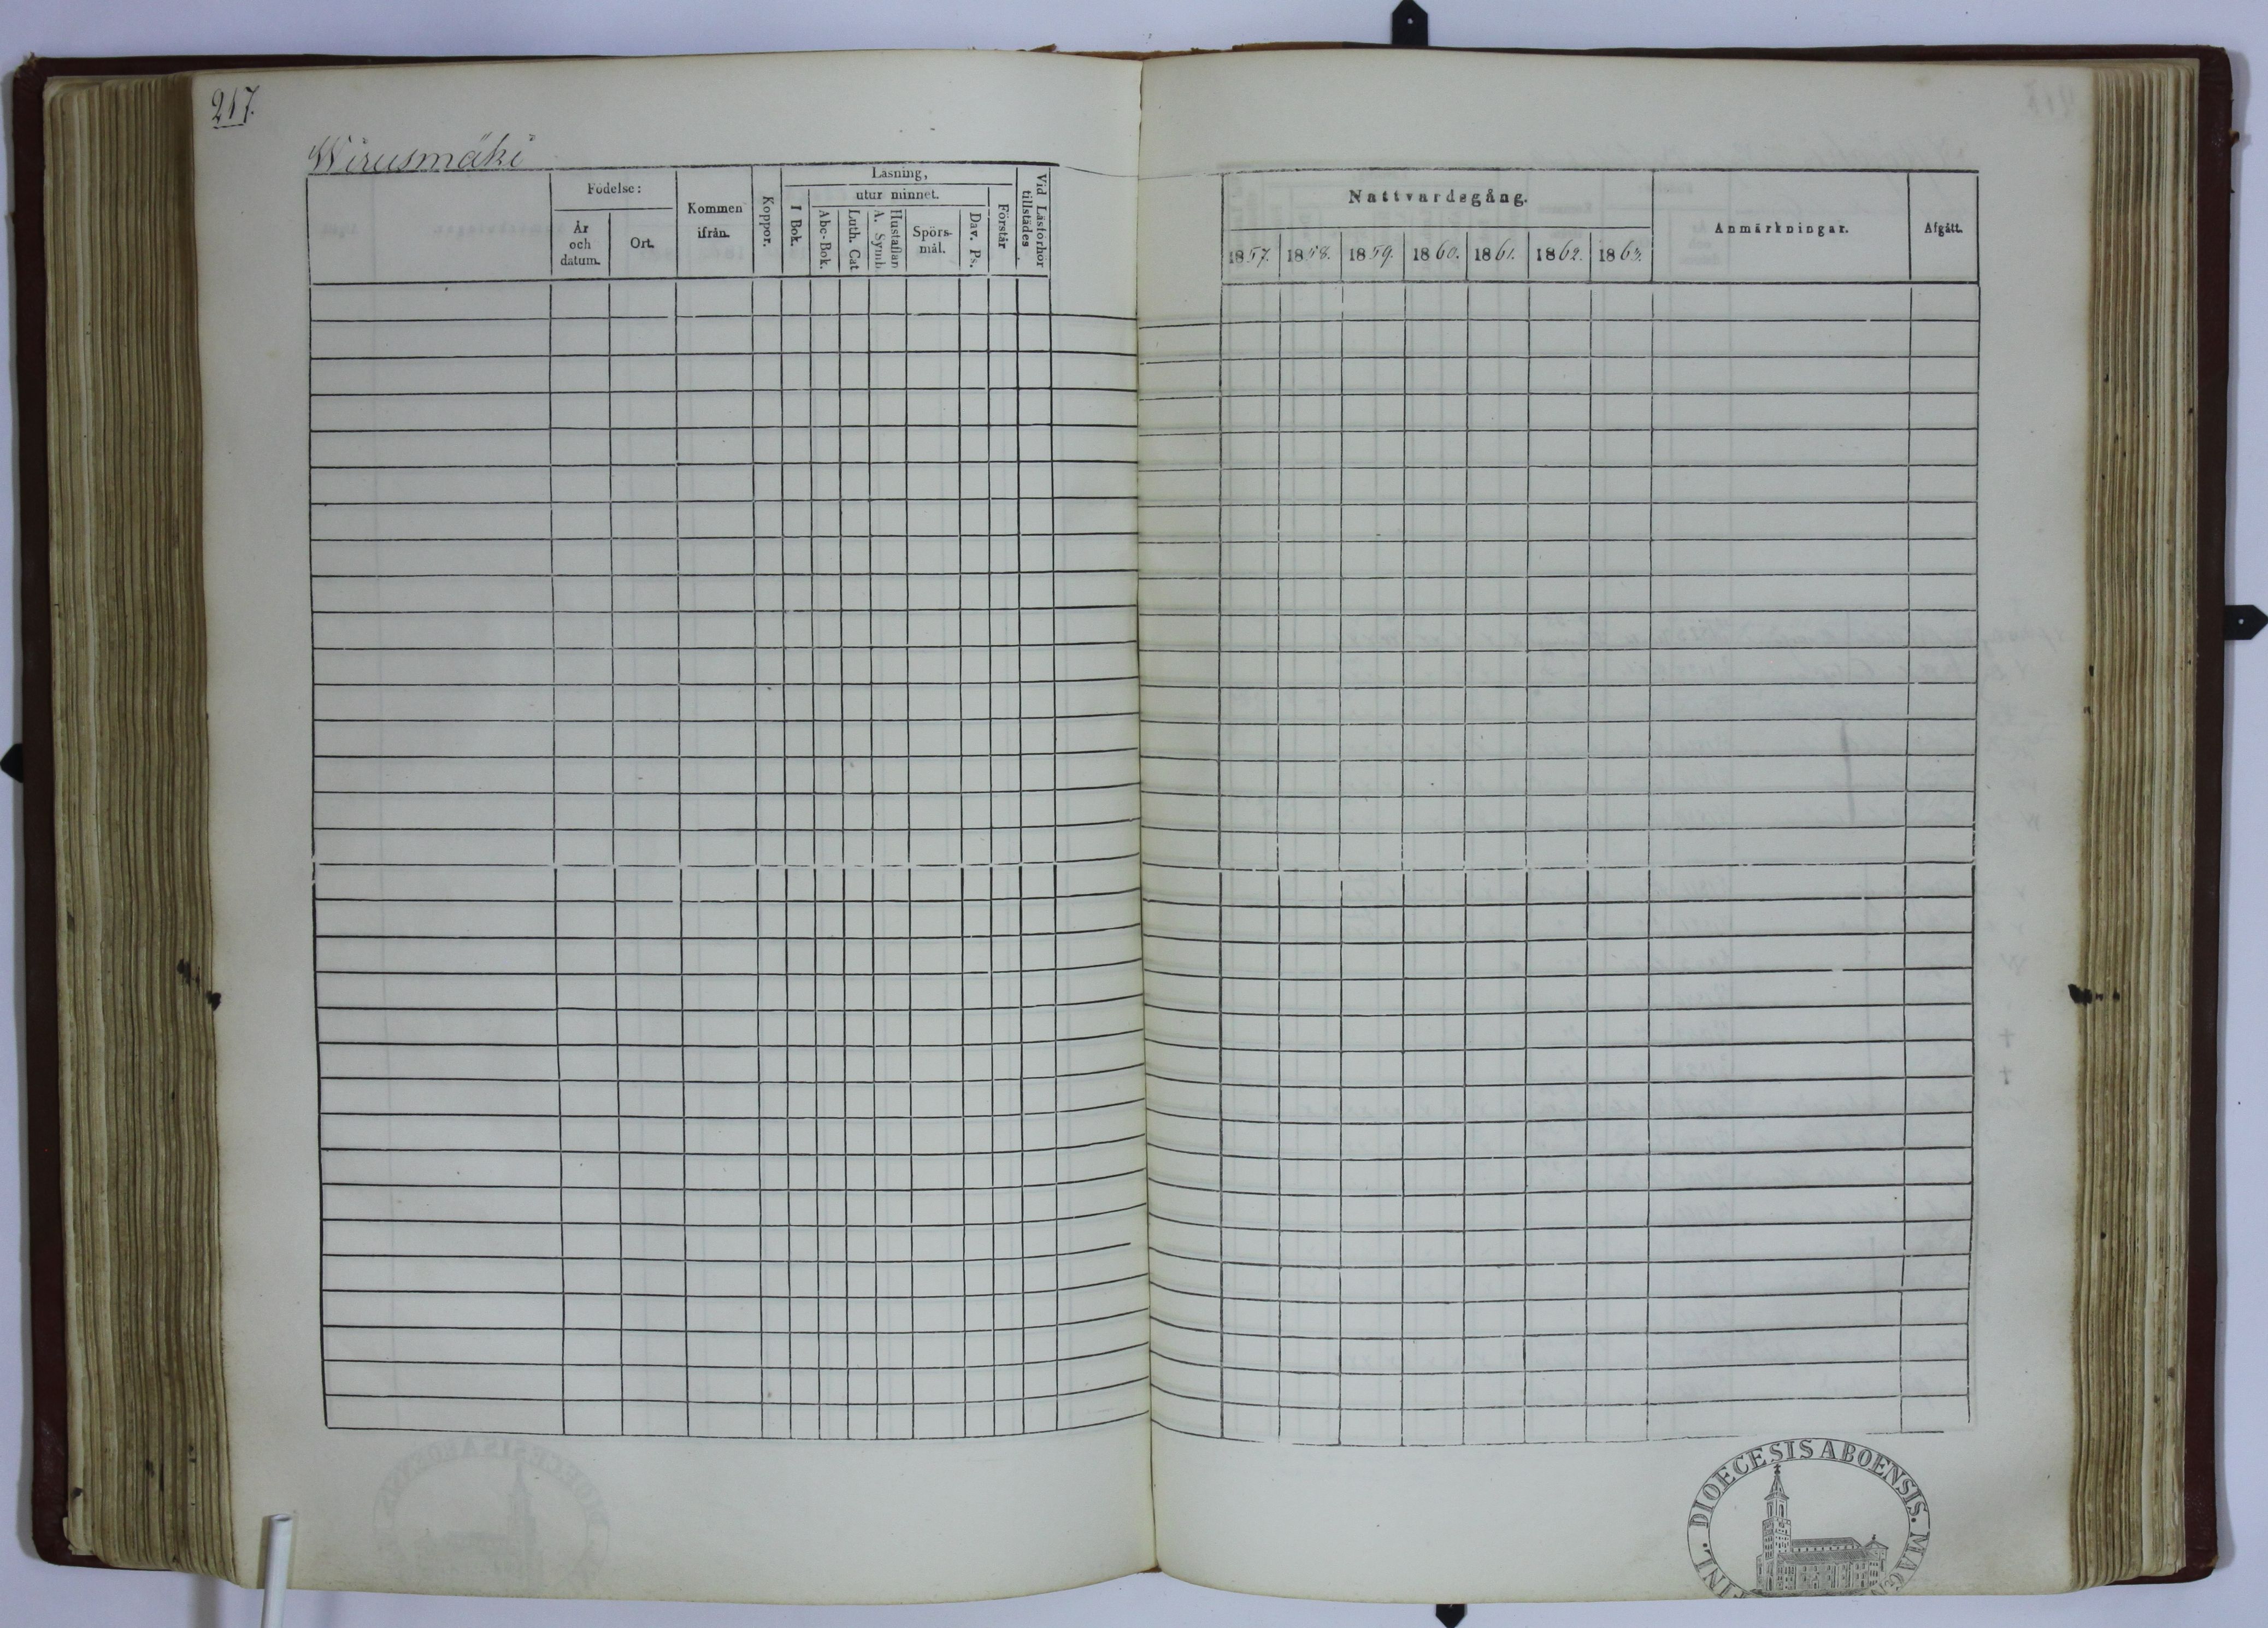 217.
Wirusmäki
Födelse:
År
och
datum.
Ort.
Kommen
ifrån.
Koppor.
Läsning,
I Bok.
utur minnet.
Abc-Bok.
Luth. Cat
A. Symb.
Hustaflan
Spörs-
mål.
Dav. Ps.
Förstår
Vid Läsförhör
tillstädes
Nattvardsgång.
1857. 1858. 1859. 1860. 1861. 1862. 1863.
Anmärkningar.
Afgått.
FINL. DIOECESIS ABOENSIS. MAG